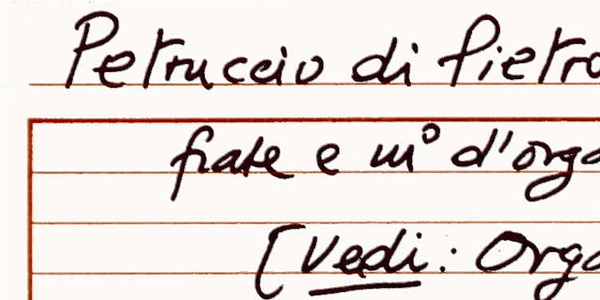 Petruccio di Pietro
frate e mº d'orga
[Vedi: Orga